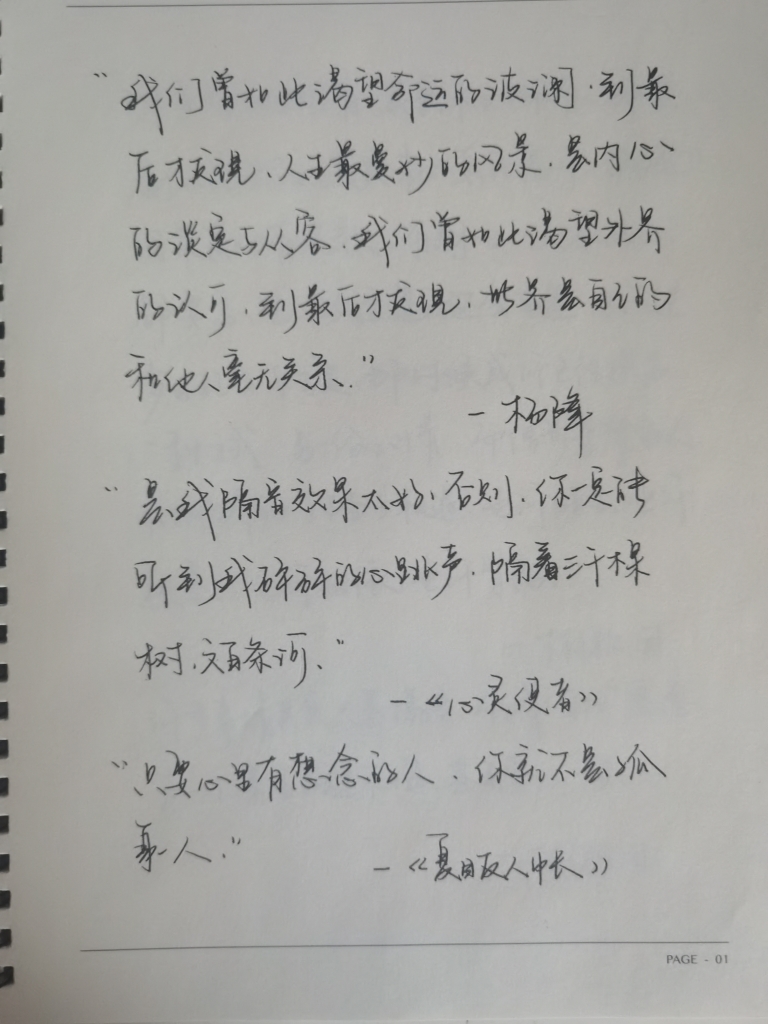 “我们曾如此渴望命运的波澜,到最
后才发现、人生最曼妙的风景,是内心
的淡定与从容、我们曾如此渴望外界
的认可,到最后才发现,世界是自己的
和他人毫无关系.”
— 杨绛
“是我隔音效果太好,否则,你一定能
听到我砰砰的心跳声,隔着三千棵
树,文百条河、”
—《心灵使者》
“只要心里有想念的人,你就不是孤
身一人.”
—《夏目友人帐》
PAGE - 01